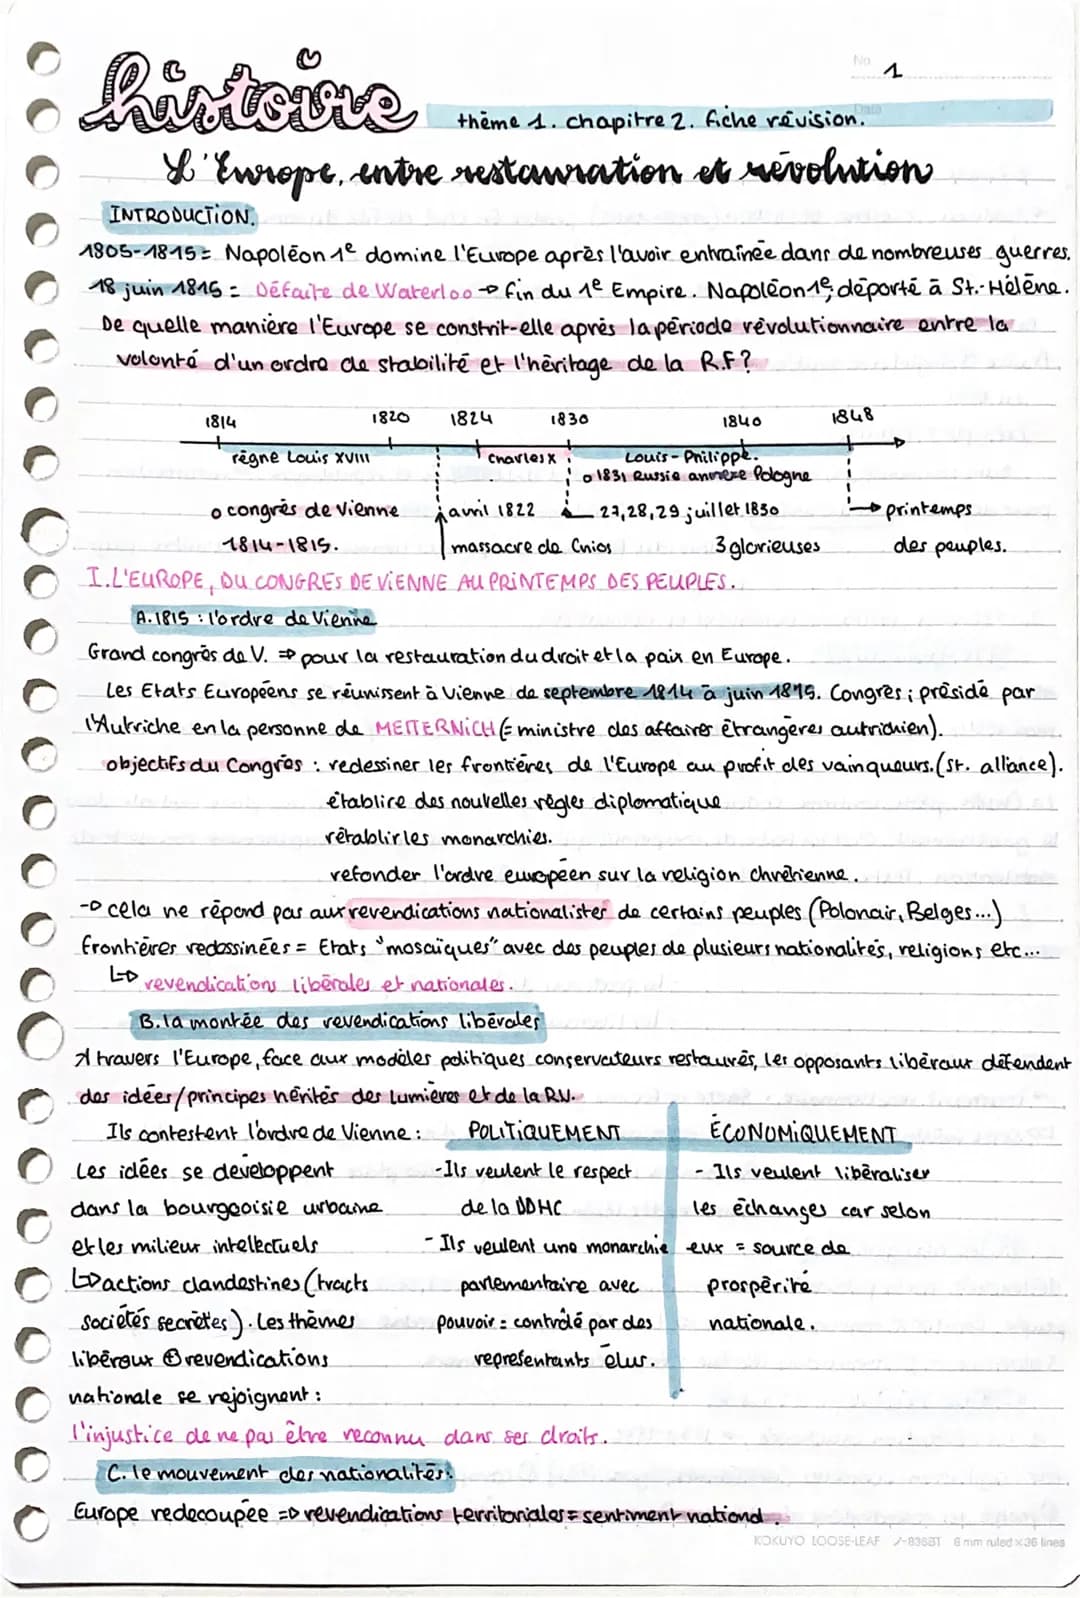 No 1
histoire
Date
thème 1. chapitre 2. fiche révision.
L'Europe, entre restauration et révolution
INTRODUCTION.
1805-1815 = Napoléon 1e domine l'Europe après l'avoir entraînée dans de nombreuses guerres.
18 juin 1815 = Défaite de Waterloo → fin du 1e Empire. Napoléon 1e, déporté à St.-Hélène.
De quelle manière l'Europe se constrit-elle après la période révolutionnaire entre la
volonté d'un ordre de stabilité et l'héritage de la R.F?
1814 1820 1824 1830 1840 1848
règne Louis XVIII Charles X Louis-Philippe.
o 1831 Russie annexe Pologne
o congrès de Vienne avril 1822 27, 28, 29 juillet 1830 → printemps
1814-1815. massacre de Chios 3 glorieuses des peuples.
I. L'EUROPE, DU CONGRES DE VIENNE AU PRINTEMPS DES PEUPLES.
A. 1815 : l'ordre de Vienne
Grand congrès de V. ⇒ pour la restauration du droit et la paix en Europe.
Les Etats Européens se réunissent à Vienne de septembre 1814 à juin 1815. Congrès ; présidé par
l'Autriche en la personne de METTERNICH (= ministre des affaires étrangères autrichien).
objectifs du Congrès : redessiner les frontières de l'Europe au profit des vainqueurs. (St. alliance).
établire des nouvelles règles diplomatique
rétablir les monarchies.
refonder l'ordre européen sur la religion chrétienne.
→ cela ne répond pas aux revendications nationalistes de certains peuples (Polonais, Belges...)
frontières redessinées = Etats "mosaïques" avec des peuples de plusieurs nationalités, religions etc...
↳ revendications libérales et nationales.
B. la montée des revendications libérales
A travers l'Europe, face aux modèles politiques conservateurs restaurés, les opposants libéraux défendent
des idées/principes hérités des lumières et de la RV.
Ils contestent l'ordre de Vienne : POLITIQUEMENT ÉCONOMIQUEMENT
Les idées se développent -Ils veulent le respect - Ils veulent libéraliser
dans la bourgeoisie urbaine de la DDHC les échanges car selon
et les milieux intellectuels - Ils veulent une monarchie eux = source de
↳ actions clandestines (tracts parlementaire avec prospérité
sociétés secrètes). Les thèmes pouvoir = contrôlé par des nationale.
libéraux ⊕ revendications représentants élus.
nationale se rejoignent :
l'injustice de ne pas être reconnu dans ses droits.
C. le mouvement des nationalités:
Europe redecoupée ⇒ revendications territoriales = sentiment national.
KOKUYO LOOSE-LEAF ノ-836BT 6 mm ruled × 36 lines